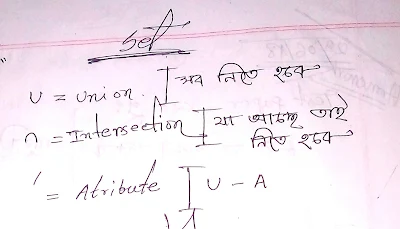 Set
U = Union. সব নিতে হবে
∩ = Intersection যা আছে তাই
নিতে হবে
′ = Atribute U - A